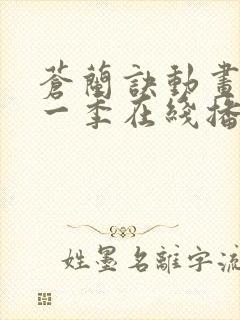 蒼蘭訣動畫
一季在綫播
姓墨名離字流